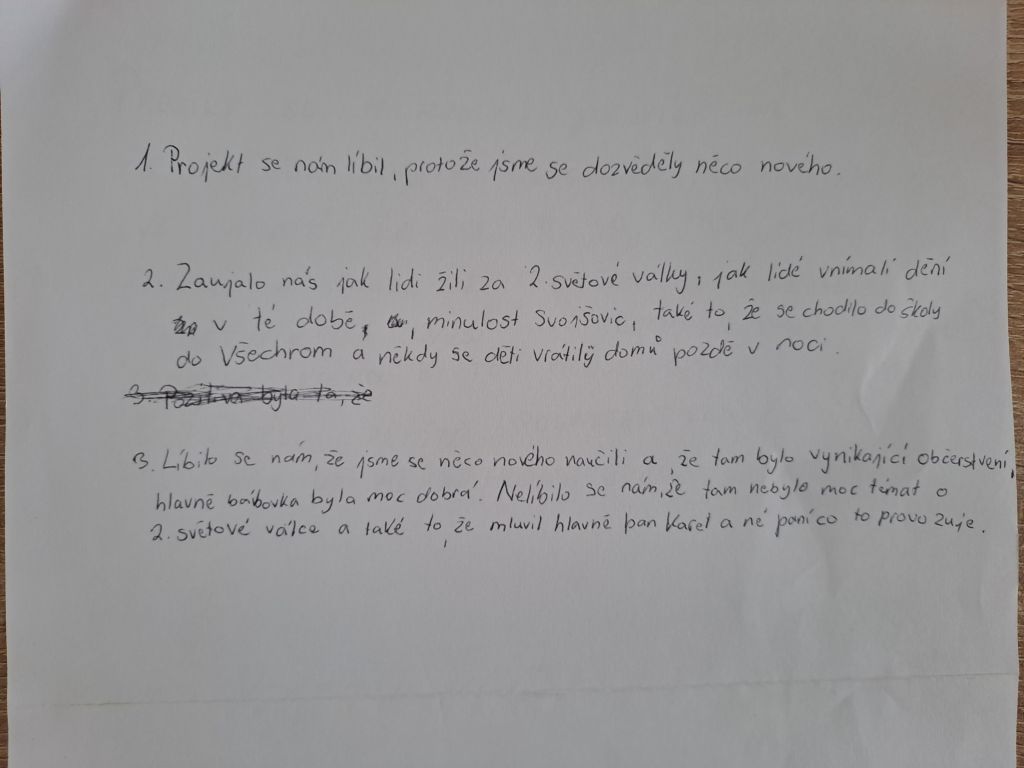 1. Projekt se nám líbil, protože jsme se dozvěděly něco nového.
2. Zaujalo nás jak lidi žili za 2. světové války, jak lidé vnímali dění
v té době, , minulost Svojšovic, také to, že se chodilo do školy
do Všechrom a někdy se děti vrátily domů pozdě v noci.
3. Pozitiva byla ta, že
3. Líbilo se nám, že jsme se něco nového naučili a, že tam bylo vynikající občerstvení,
hlavně bábovka byla moc dobrá. Nelíbilo se nám, že tam nebylo moc témat o
2. světové válce a také to, že mluvil hlavně pan Karel a né paní co to provozuje.